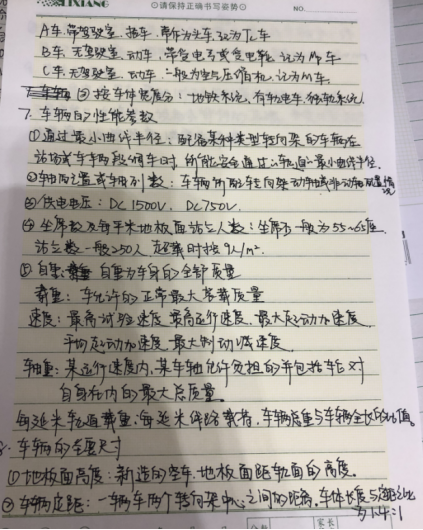 LIXIANG
⊙请保持正确书写姿势⊙
NO.
A车:带驾驶室,拖车,常作为头车,记为Tc车
B车:无驾驶室,动车,带受电弓或受电靴,记为Mp车
C车:无驾驶室,动车,一般为空气压缩机,记为M车.
②按车体宽度分:地铁系统,有轨电车,独轨系统
7、车辆的性能参数
①通过最小曲线半径:配备某种类型转向架的车辆在
站场或车辆段调车时所能安全通过的轨道最小曲线半径.
②轴配置或轴列数:车辆所配转向架动轴或非动轴配置情况
③供电电压:DC1500V,DC750V.
④座席数及每平米地板面站立人数:座席一般为55~65座
站立数一般≥250人 超载时按9人/m².
⑤自重、载重 自重为车身的全部质量
载重:车允许的正常最大装载质量
速度:最高试验速度,最高运行速度,最大起动加速度,
平均起动加速度,最大制动减速度
轴重:某运行速度内,某车轴允许负担的并包括轮对
自身在内的最大总质量.
每延米轨道载重:每延米线路载荷,车辆总重与车辆全长的比值.
8、车辆的主要尺寸
①地板面高度:新造的空车,地板面距轨面的高度.
②车辆定距:一辆车两个转向架中心之间的距离,车体长度与定距之比
为1.4:1